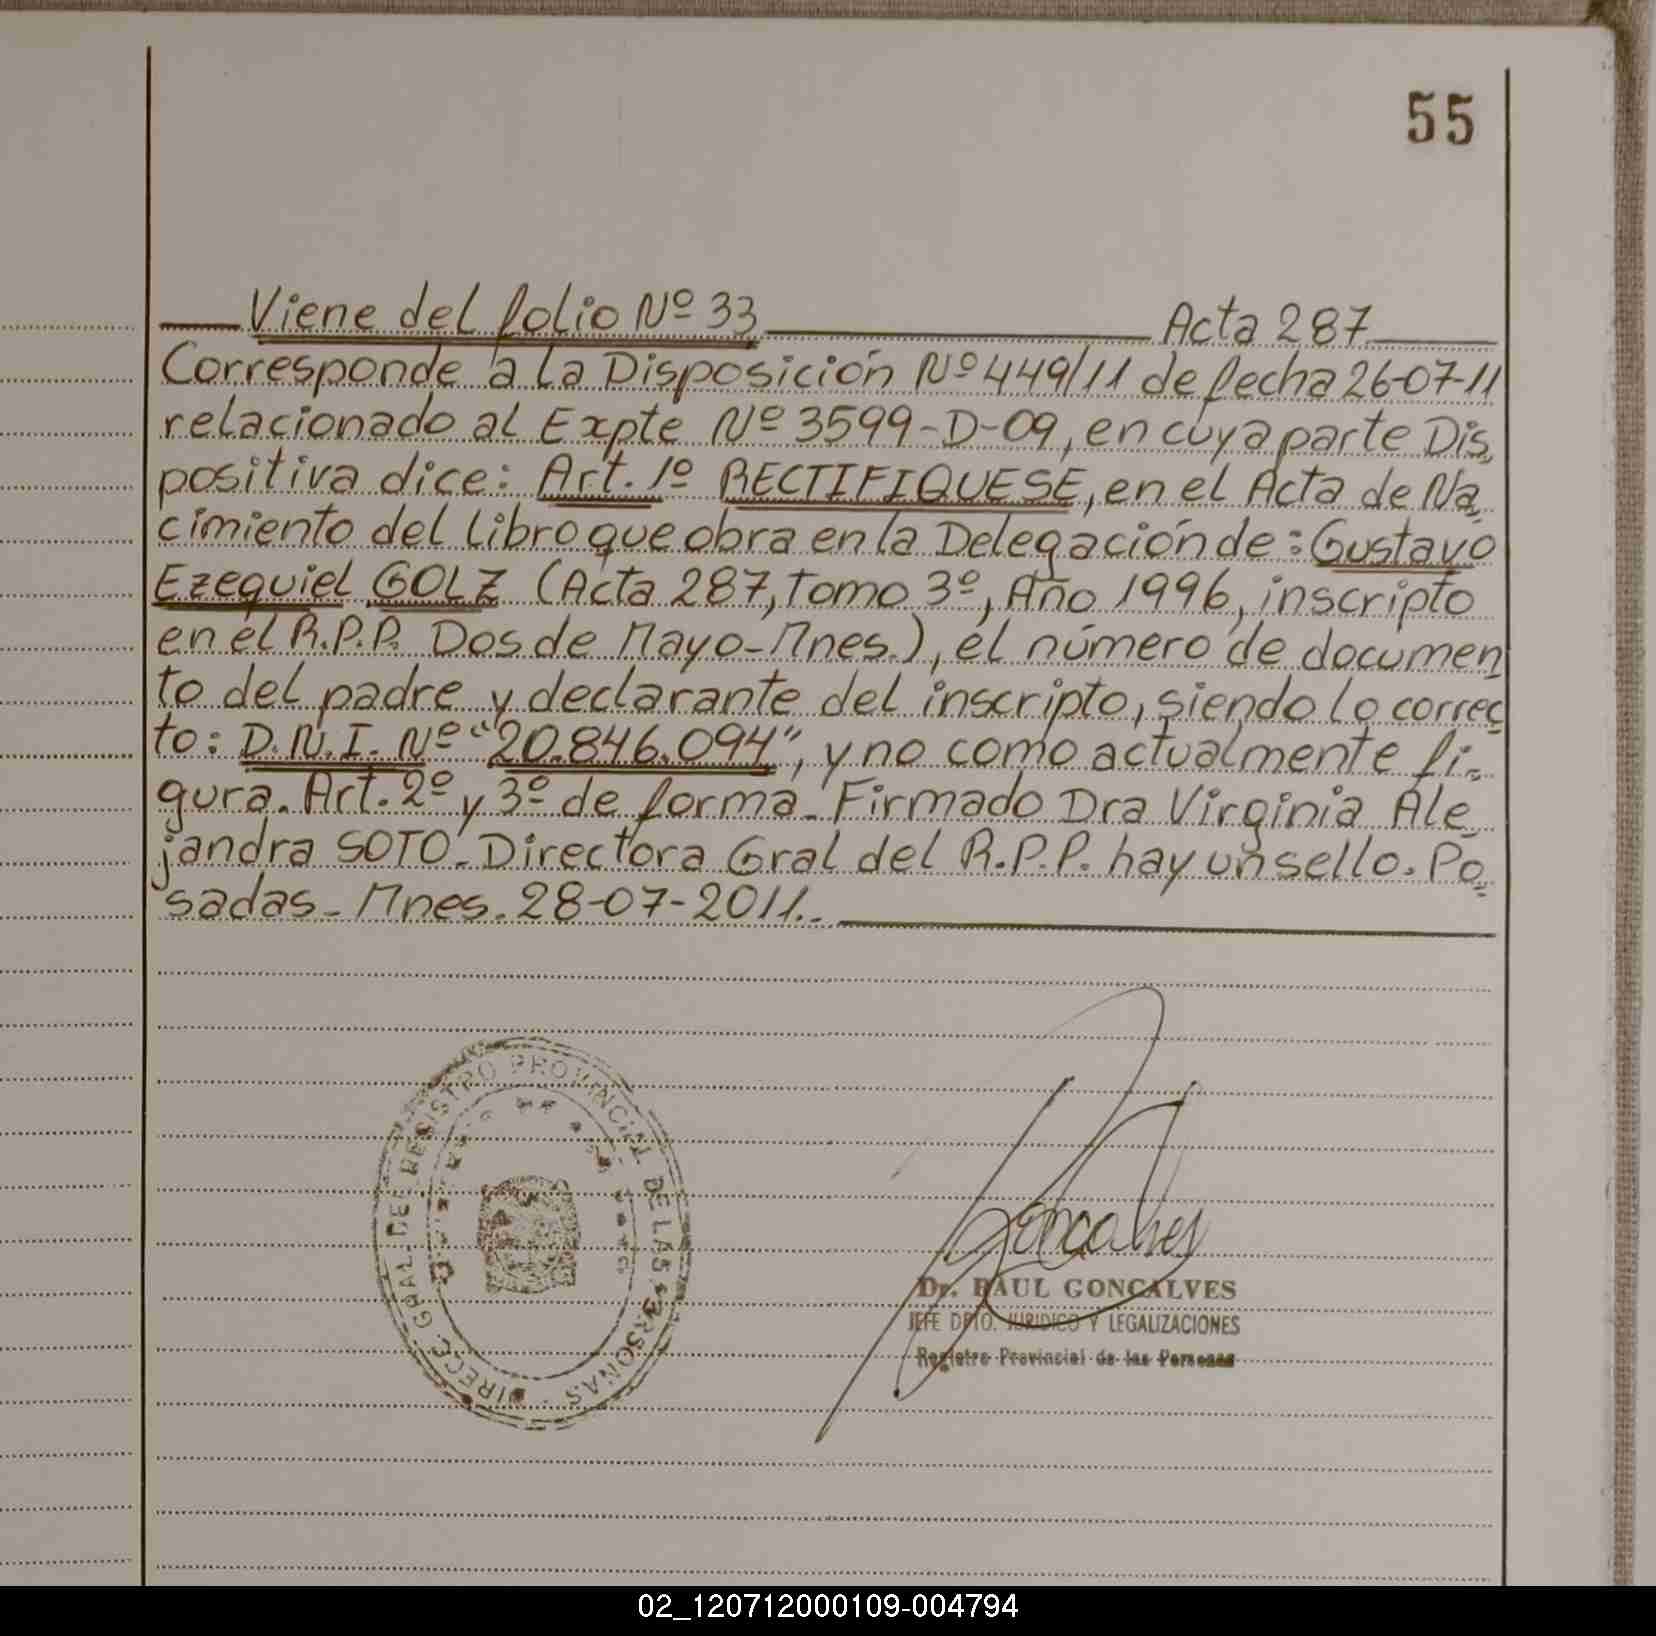 55
Viene del folio Nº 33 Acta 287
Corresponde a la Disposición Nº 449/11 de fecha 26-07-11
relacionado al Expte Nº 3599-D-09, en cuya parte Dis
positiva dice: Art. 1º RECTIFIQUESE, en el Acta de Na
cimiento del libro que obra en la Delegación de: Gustavo
Ezequiel GOLZ (Acta 287, Tomo 3º, Año 1996, inscripto
en el R.P.P. Dos de Mayo-Mnes.), el número de documen
to del padre y declarante del inscripto, siendo lo correc
to: D.N.I. Nº "20.846.094", y no como actualmente fi-
gura. Art. 2º y 3º de forma. Firmado Dra Virginia Ale
jandra SOTO. Directora Gral del R.P.P. hay un sello. Po
sadas - Mnes. 28-07-2011.-
DIRECC. GRAL. DEL REGISTRO PROVINCIAL DE LAS PERSONAS
Goncalves
Dr. RAUL GONCALVES
JEFE DPTO. JURIDICO Y LEGALIZACIONES
Registro Provincial de las Personas
02_120712000109-004794